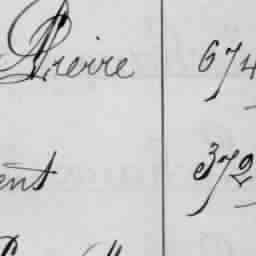 Pierre 674
ent 372